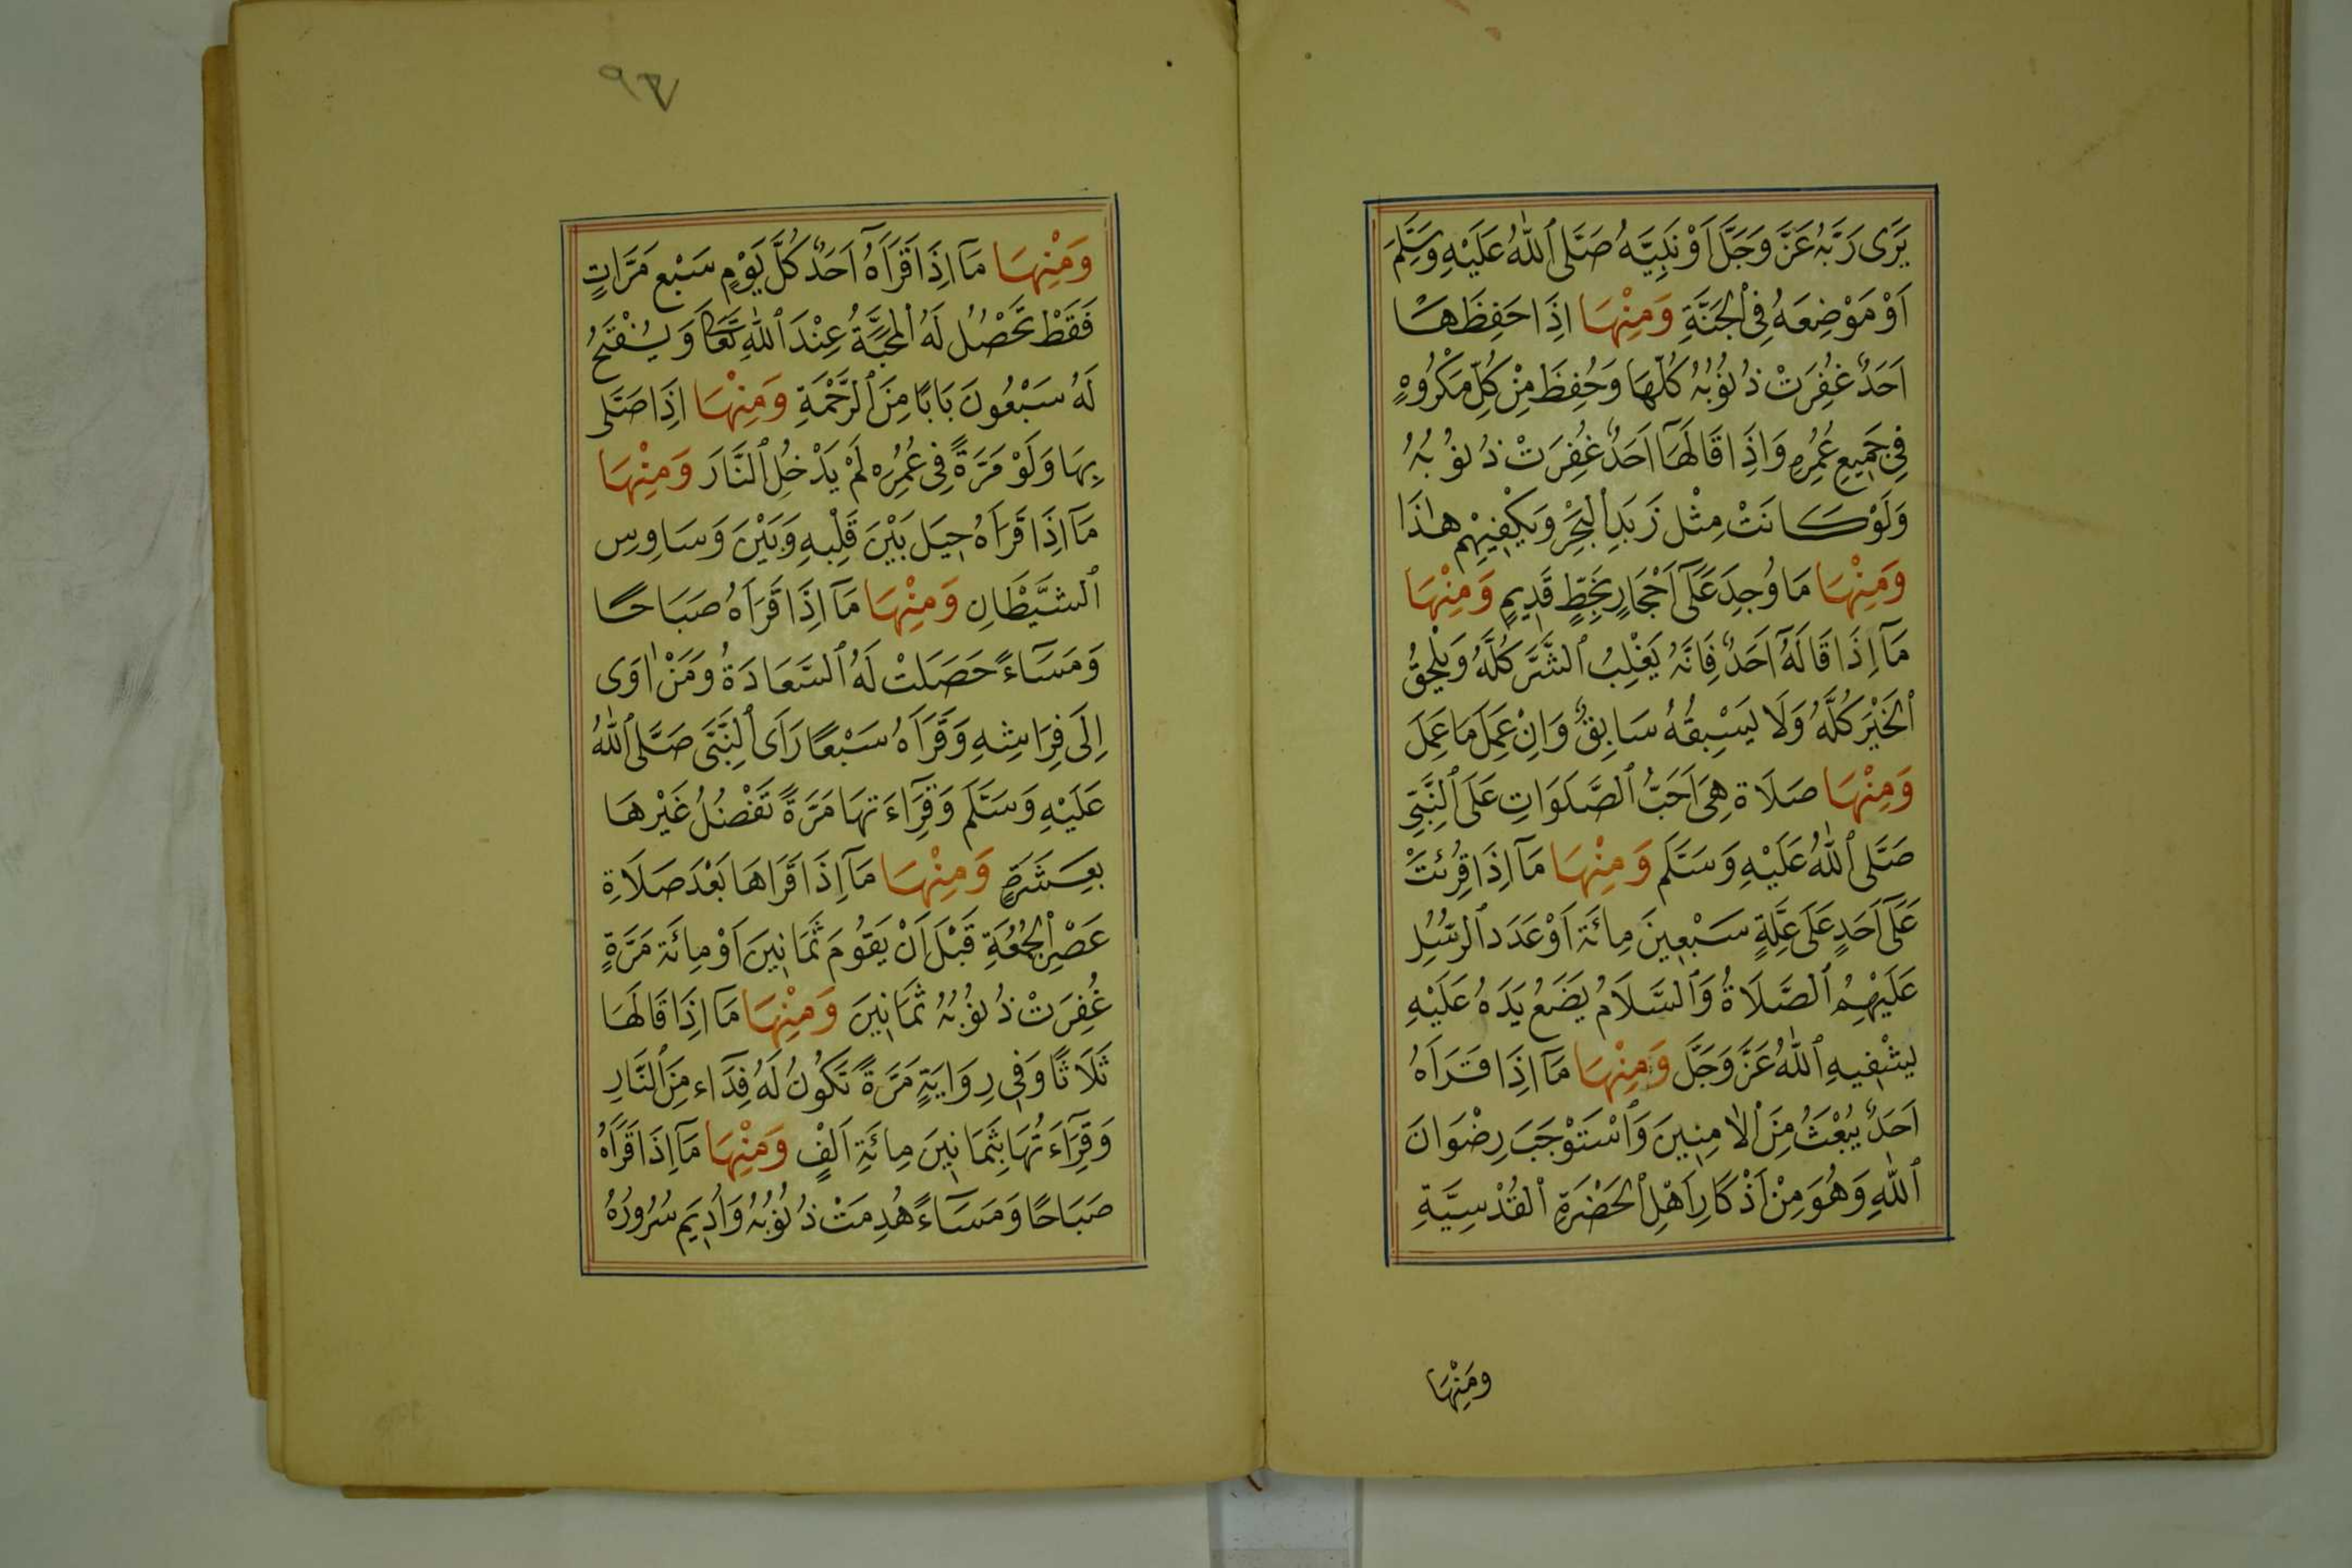 يَرَى رَبَّهُ عَزَّ وَجَلَّ اَوْ نَبِيَّهُ صَلَّى ٱللّٰهُ عَلَيْهِ وَسَلَّمَ
اَوْ مَوْضِعَهُ فِى ٱلْجَنَّةِ وَمِنْهَا اِذَا حَفِظَهَا
اَحَدٌ غُفِرَتْ ذُنُوُبُهُ كُلّهَا وَحُفِظَ مِنْ كُلِّ مَكْرُوُهٍ
فِى جَمِيعِ عُمُرِهِ وَاِذَا قَالَهَآ اَحَدٌ غُفِرَتْ ذُنُوُبُهُ
وَلَوْ كَانَتْ مِثْل زَبَدِ ٱلْبَحْرِ وَيَكْفِيْهِم هٰذَا
وَمِنْهَا مَا وُجِدَ عَلَىٓ اَحْجَارٍ بِخَطٍّ قَدِيمٍ وَمِنْهَا
مَآ اِذَا قَالَهُٓ اَحَدٌ فَاِنَّهُ يَغْلِبُ ٱلشَّرَّ كُلَّهُ وَيَلْحَقُ
ٱلْخَيْرَ كُلَّهُ وَلَا يَسْبِقُهُ سَابِقٌ وَاِنْ عَمِلَ مَا عَمِلَ
وَمِنْهَا صَلَاة هِىَ اَحَبُّ ٱلصَّلَوَاتِ عَلَى ٱلنَّبِىِّ
صَلَّى ٱللّٰهُ عَلَيْهِ وَسَلَّم وَمِنْهَا مَآ اِذَا قُرِئَتْ
عَلَىٓ اَحَدٍ عَلَى عِلَّةٍ سَبْعِينَ مِائَة اَوْ عَدَد ٱلرُّسُلِ
عَلَيْهِمُ ٱلصَّلَاةُ وَٱلسَّلَامُ يَضَعُ يَدَهُ عَلَيْهِ
يَشْفِيهِ ٱللّٰهُ عَزَّ وَجَلَّ وَمِنْهَا مَآ اِذَا قَرَاَهُ
اَحَدٌ يُبْعَثُ مِنَ ٱلْاٰمِنِينَ وَٱسْتَوْجَبَ رِضْوَانَ
ٱللّٰهِ وَهُوَ مِنْ اَذْكَارِ اَهْلِ ٱلْحَضْرَةِ ٱلْقُدْسِيَّةِ
ومَنِهْاَ
٩٧
وَمِنْهَا مَآ اِذَا قَرَاَهُٓ اَحَدٌ كُلَّ يَوْمٍ سَبْع مَرَّاتٍ
فَقَطْ تَحْصُلُ لَهُ ٱلْمَحَبَّةُ عِنْدَ ٱللّٰهِ تَعَالَى وَيُفْتَحُ
لَهُ سَبْعُونَ بَابًا مِنَ ٱلرَّحْمَةِ وَمِنْهَا اِذَا صَلَّى
بِهَا وَلَوْ مَرَّةً فِى عُمُرِهِ لَمْ يَدْخُلِ ٱلنَّارَ وَمِنْهَا
مَآ اِذَا قَرَاَهُ حِيَلَ بَيْنَ قَلْبِهِ وَبَيْنَ وَسَاوِسِ
ٱلشَّيْطَانِ وَمِنْهَا مَآ اِذَا قَرَاَهُ صَبَاحًا
وَمَسَآءً حَصَلَتْ لَهُ ٱلسَّعَادَةُ وَمَنْ اٰوَى
اِلَى فِرَاشِهِ وَقَرَاَهُ سَبْعًا رَاَى ٱلنَّبِىَّ صَلَّى ٱللّٰهُ
عَلَيْهِ وَسَلَّم وَقِرَآءَتهَا مَرَّةً تَفْضُلُ غَيْرهَا
بِعَشَرَةٍ وَمِنْهَا مَآ اِذَا قَرَاهَا بَعْدَ صَلَاةِ
عَصْرِ ٱلْجُمُعَةِ قَبْلَ اَنْ يَقوُمَ ثَمَانِينَ اَوْ مِائَة مَرَّةٍ
غُفِرَتْ ذُنوُبُهُ ثَمَانِينَ وَمِنْهَا مَآ اِذَا قَالَهَا
ثَلَاثًا وَفِى رِوَايَةٍ مَرَّةً تَكُونُ لَهُ فِدَآء مِنَ ٱلنَّارِ
وَقِرَآءَتُهَا بِثَمَانِينَ مِائَةِ اَلْفٍ وَمِنْهَا مَآ اِذَا قَرَاَهُ
صَبَاحًا وَمَسَآءً هُدِمَتْ ذُنُوُبُهُ وَاُدِيَم سُرُورُهُ